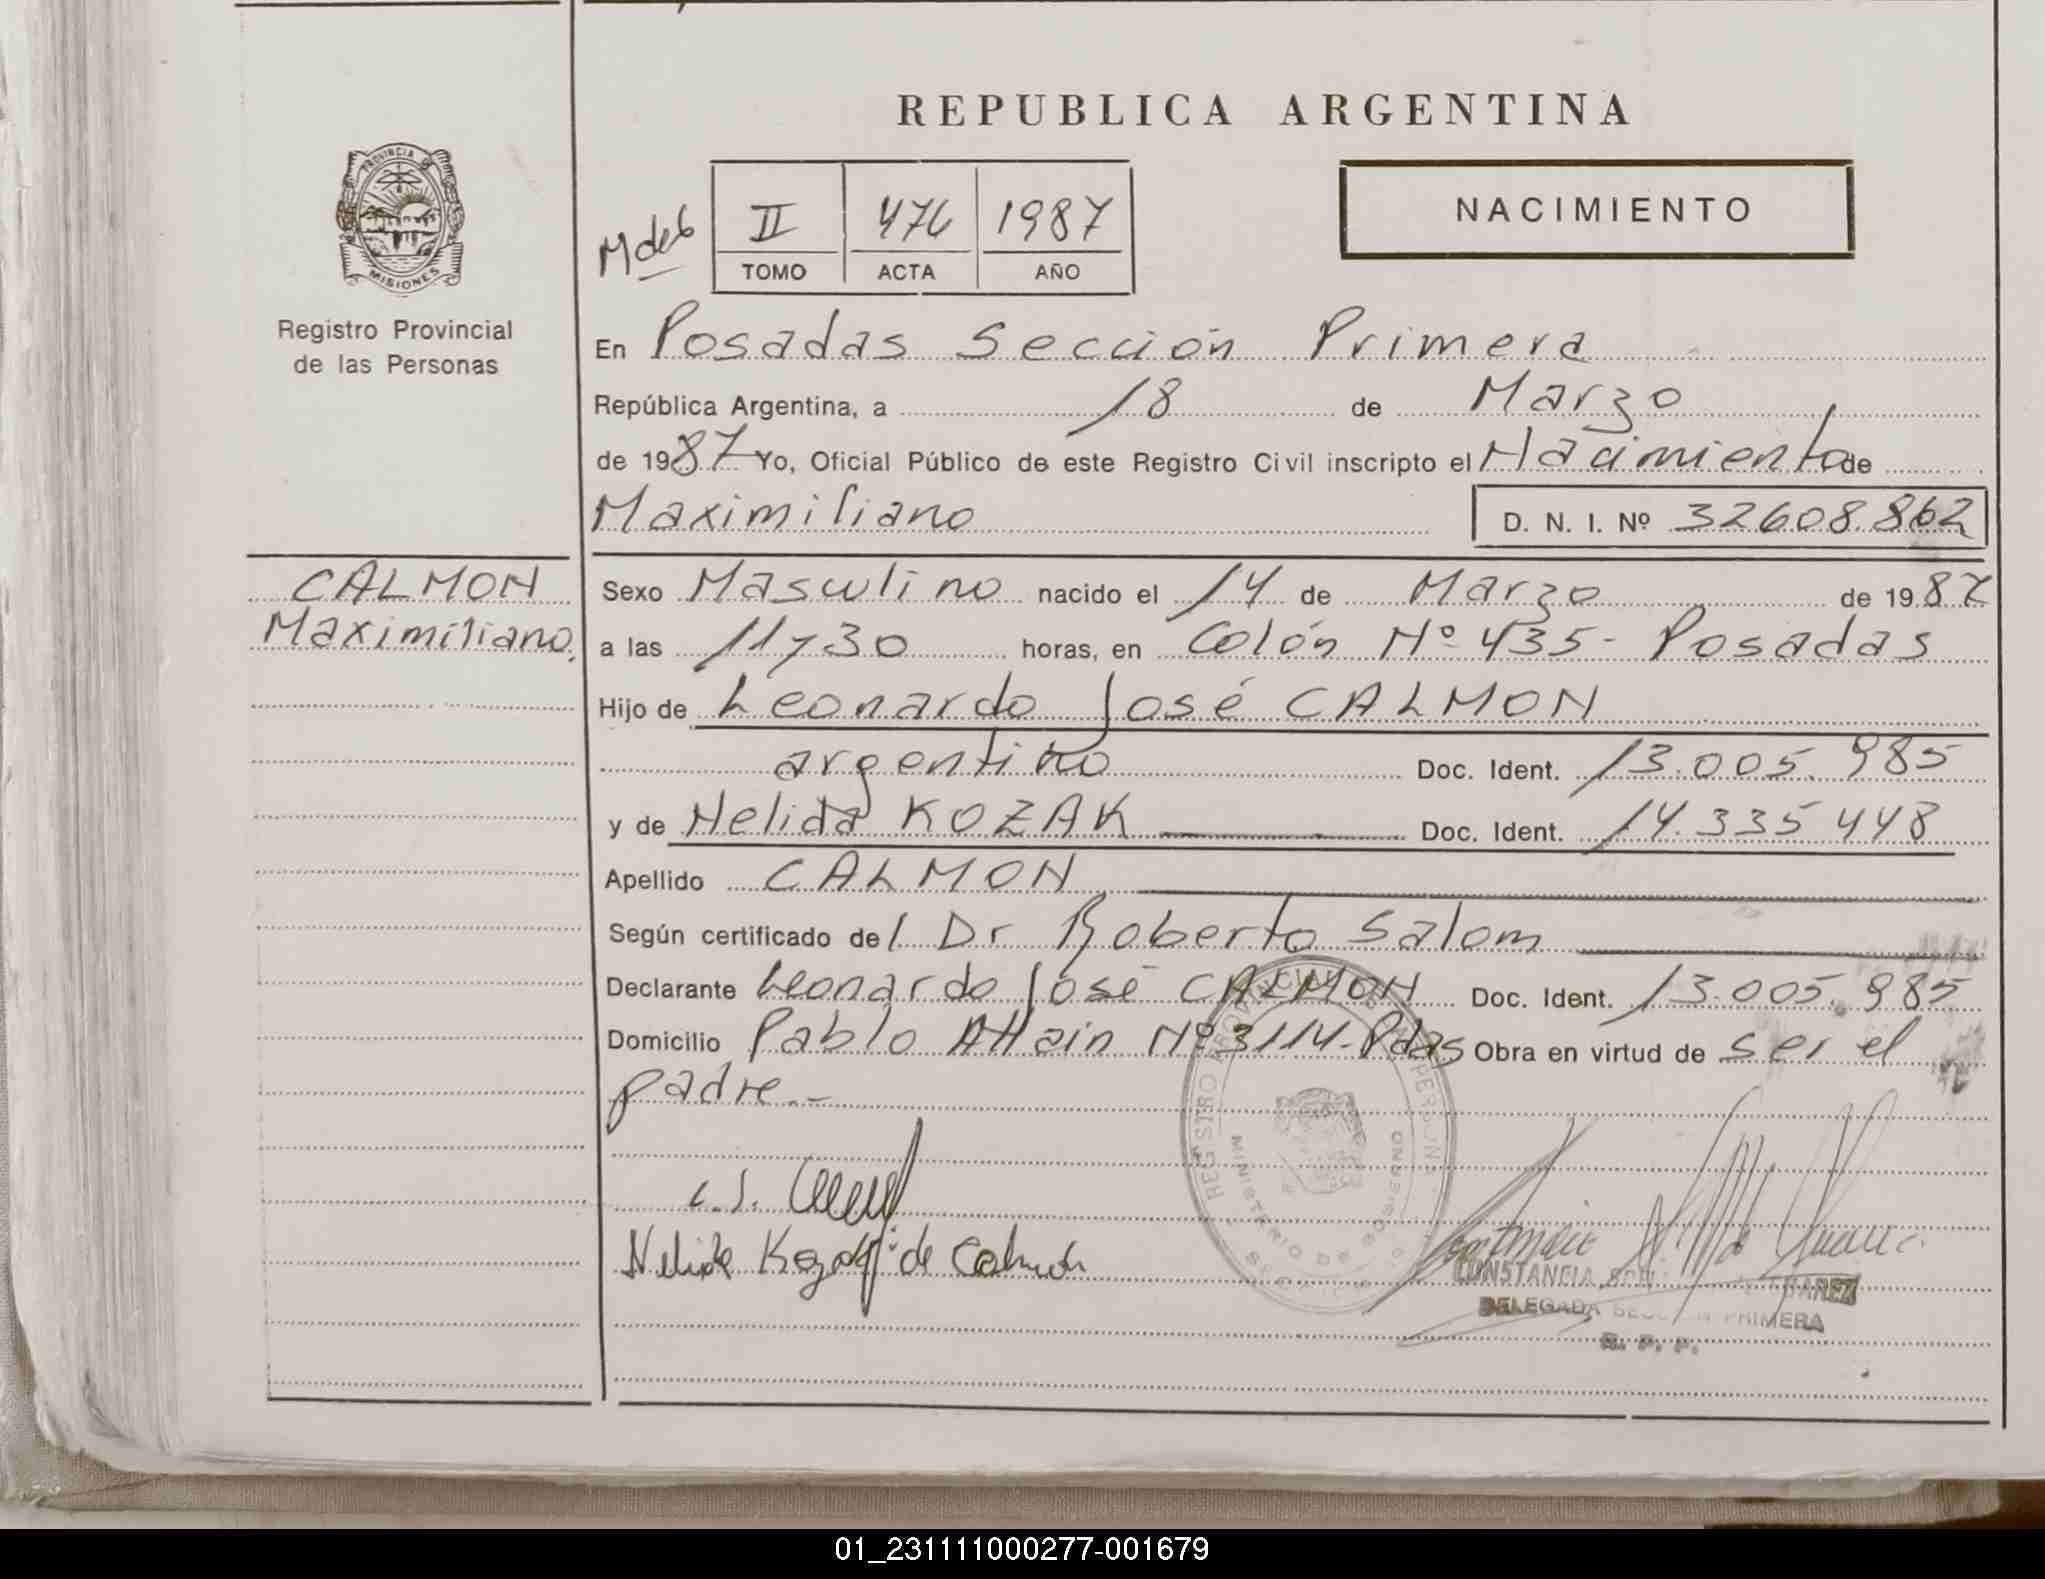 REPUBLICA ARGENTINA
PROVINCIA DE
MISIONES
Registro Provincial
de las Personas
II 476 1987
TOMO ACTA AÑO
NACIMIENTO
En Posadas Sección Primera
República Argentina, a 18 de Marzo
de 1987 Yo, Oficial Público de este Registro Civil inscripto el Nacimiento de
Maximiliano D. N. I. Nº 32608.862
CALMON
Maximiliano.
Sexo Masculino nacido el 14 de Marzo de 1987
a las 11 y 30 horas, en Colón Nº 435- Posadas
Hijo de Leonardo José CALMON
argentino Doc. Ident. 13.005.985
y de Nelida KOZAK Doc. Ident. 14.335 448
Apellido CALMON
Según certificado del Dr Roberto Salom
Declarante Leonardo José CALMON Doc. Ident. 13.005.985
Domicilio Pablo Allain Nº 3114-Pdas Obra en virtud de ser el
padre.-
REGISTRO PROVINCIAL DE
MINISTERIO DE GOBIERNO
Nelida Kozak de Calmon
CONSTANCIA
DELEGADA SECCION PRIMERA
R. P. P.
01_231111000277-001679